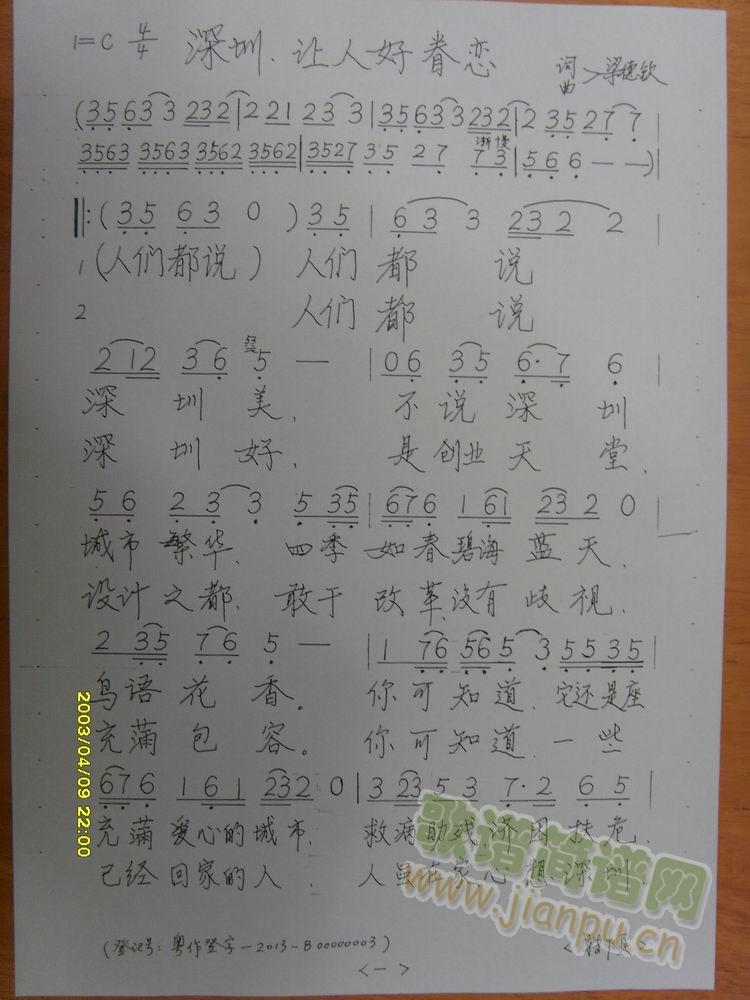 1=C 4/4 深圳.让人好眷恋
词
曲>梁德钦
(35633 232|2 221 23 3|35633 232|2 35 27 7|
渐慢
3563 3563 3562 3562|3527 35 27 73|566--)
‖:(35 63 0)35|63 3 232 2
1(人们都说)人们都说
2 人们都说
212 36 5 —|06 35 6·7 6
深圳美.不说深圳
深圳好.是创业天堂.
56 23 3 535|676 161 232 0|
城市繁华.四季如春碧海蓝天.
设计之都.敢于改革没有歧视.
235 76 5 —|176 565 3 5535|
鸟语花香。你可知道.它还是座
充满包容。你可知道.一些
676 161 232 0|323 53 7·2 65|
充满爱心的城市.救病助残.济困扶危.
已经回家的人.人虽在家.心想深圳.
歌谱简谱网
www.jianpu.cn
(登记号:粤作登字-2013-B00000003)
<转下页>
<一>
2003/04/09 22:00